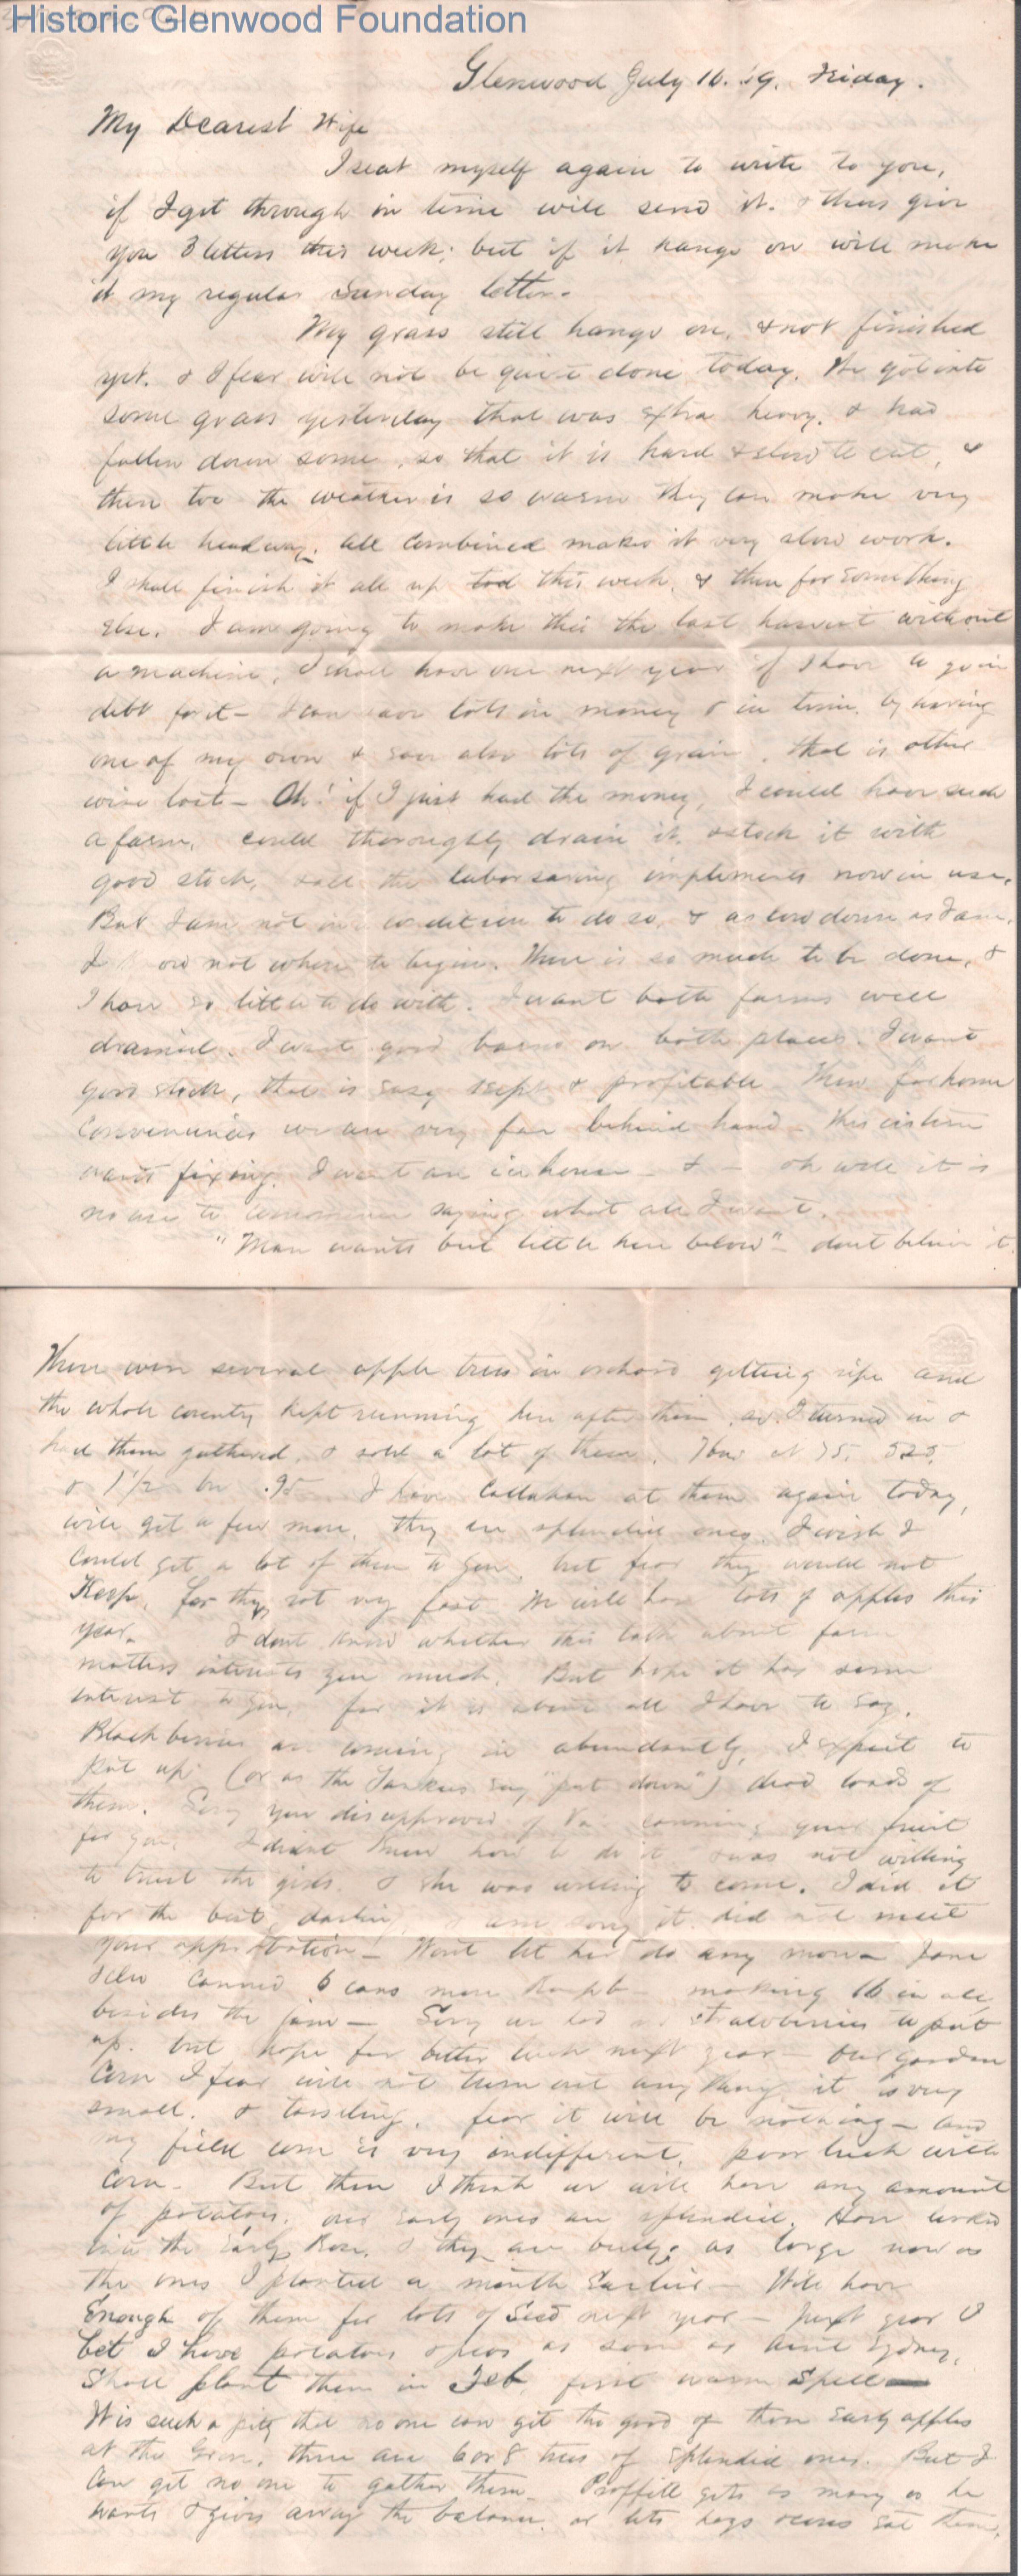 Historic Glenwood Foundation
Glenwood July 16. '69. Friday.
My Dearest Wife
I seat myself again to write to you,
if I get through in time will send it. & thus give
you 3 letters this week; but if it hangs on will make
it my regular Sunday letter.
My grass still hangs on, & not finished
yet. & I fear will not be quite done today. We got into
some grass yesterday that was extra heavy. & had
fallen down some, so that it is hard & slow to cut, &
then too the weather is so warm they can make very
little headway. All combined makes it very slow work.
I shall finish it all up tod this week, & then for something
else. I am going to make this the last harvest without
a machine; I shall have one next year if I have to go in
debt for it - I can save lots in money & in time, by having
one of my own & save also lots of grain, that is other
wise lost - Oh! if I just had the money, I could have such
a farm, could thoroughly drain it, & stock it with
good stock, & all the labor saving implements now in use.
But I am not in a condition to do so, & as low down as I am,
I know not where to begin. There is so much to be done, &
I have so little to do with. I want both farms well
drained. I want good barns on both places. I want
good stock, that is easy kept & profitable. Then for home
conveniences we are very far behind hand - this cistern
wants fixing. I want an ice house - & - oh well it is
no use to saying what all I want.
"Man wants but little here below" - dont believe it.
There were several apple trees in orchard getting ripe and
the whole county kept running here after them, so I turned in &
had them gathered, & sold a lot of them. 7 bus at 75. 525,
& 1 1/2 bu .95 I have Callahan at them again today,
will get a few more, they are splendid ones. I wish I
could get a lot of them to you, but fear they would not
Keep, for they rot very fast. We will have lots of apples this
year. I dont know whether this talk about farm
matters interests you much. But hope it has some
interest to you, for it is about all I have to say.
Blackberries are coming in abundantly, I expect to
put up (or as the Yankees say, "put down") dead loads of
them. Sorry you disapproved of Va canning your fruit
for you. I didnt know how to do it & was not willing
to trust the girls. & she was willing to come. I did it
for the best, darling, & am sorry it did not meet
your approbation - Wont let her do any more - Jane
canned 6 cans more - making 16 in all,
besides the jam - Sorry we had no strawberries to put
up. but hope for better luck next year - Our garden
Corn I fear will not turn out any thing, it is very
small. & tasseling. fear it will be nothing - and
my field corn is very indifferent. poor luck with
Corn. But then I think we will have any amount
of potatoes. our early ones are splendid. Have
into the Early Rose, & they are bully. as large now as
the ones I planted a month Earlier - Will have
Enough of them for lots of Seed next year - Next year I
bet I have potatoes & peas as soon as Aunt Sydney,
Shall plant them in Feb, first warm Spell
It is such a pity that no one can get the good of those early apples
at the there are 6 or 8 trees of Splendid ones. But I
Can get no one to gather them - Proffitt gets as many as he
wants & gives away the balance, or lets hogs eat them.